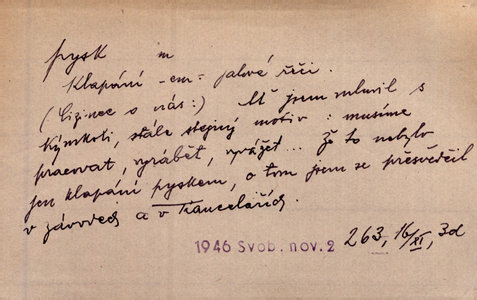 pysk m
Klapání -em = jalové řeči.
(Cizinec o nás:) Ať jsem mluvil s
kýmkoli, stále stejný motiv: musíme
pracovat, vyrábět, vyvážet... Že to nebylo
jen klapání pyskem, o tom jsem se přesvědčil
v závodech a v kancelářích.
1946 Svob. nov. 2 263, 16/XI, 3d